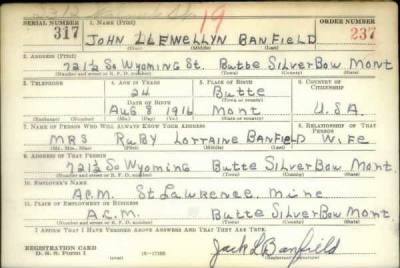 19
SERIAL NUMBER 1. NAME (Print) ORDER NUMBER
317 JOHN LLEWELLYN BANFIELD 237
(First) (Middle) (Last)
2. ADDRESS (Print)
721½ So Wyoming St. Butte SilverBow Mont
(Number and street or R. F. D. number) (Town) (County) (State)
3. TELEPHONE 4. AGE IN YEARS 5. PLACE OF BIRTH 6. COUNTRY OF CITIZENSHIP
24 Butte
DATE OF BIRTH (Town or county)
Aug 8 1916 Mont U.S.A.
(Exchange) (Number) (Mo.) (Day) (Yr.) (State or country)
7. NAME OF PERSON WHO WILL ALWAYS KNOW YOUR ADDRESS 8. RELATIONSHIP OF THAT PERSON
MRS RUBY LORRAINE BANFIELD WIFE
(Mr., Mrs., Miss) (First) (Middle) (Last)
9. ADDRESS OF THAT PERSON
721½ So Wyoming Butte SilverBow Mont.
(Number and street or R. F. D. number) (Town) (County) (State)
10. EMPLOYER'S NAME
A.C.M. St Lawrence Mine
11. PLACE OF EMPLOYMENT OR BUSINESS
A.C.M. Butte SilverBow Mont
(Number and street or R. F. D. number) (Town) (County) (State)
I AFFIRM THAT I HAVE VERIFIED ABOVE ANSWERS AND THAT THEY ARE TRUE.
REGISTRATION CARD
D. S. S. Form 1 (over) Jack L Banfield
(Registrant's signature)